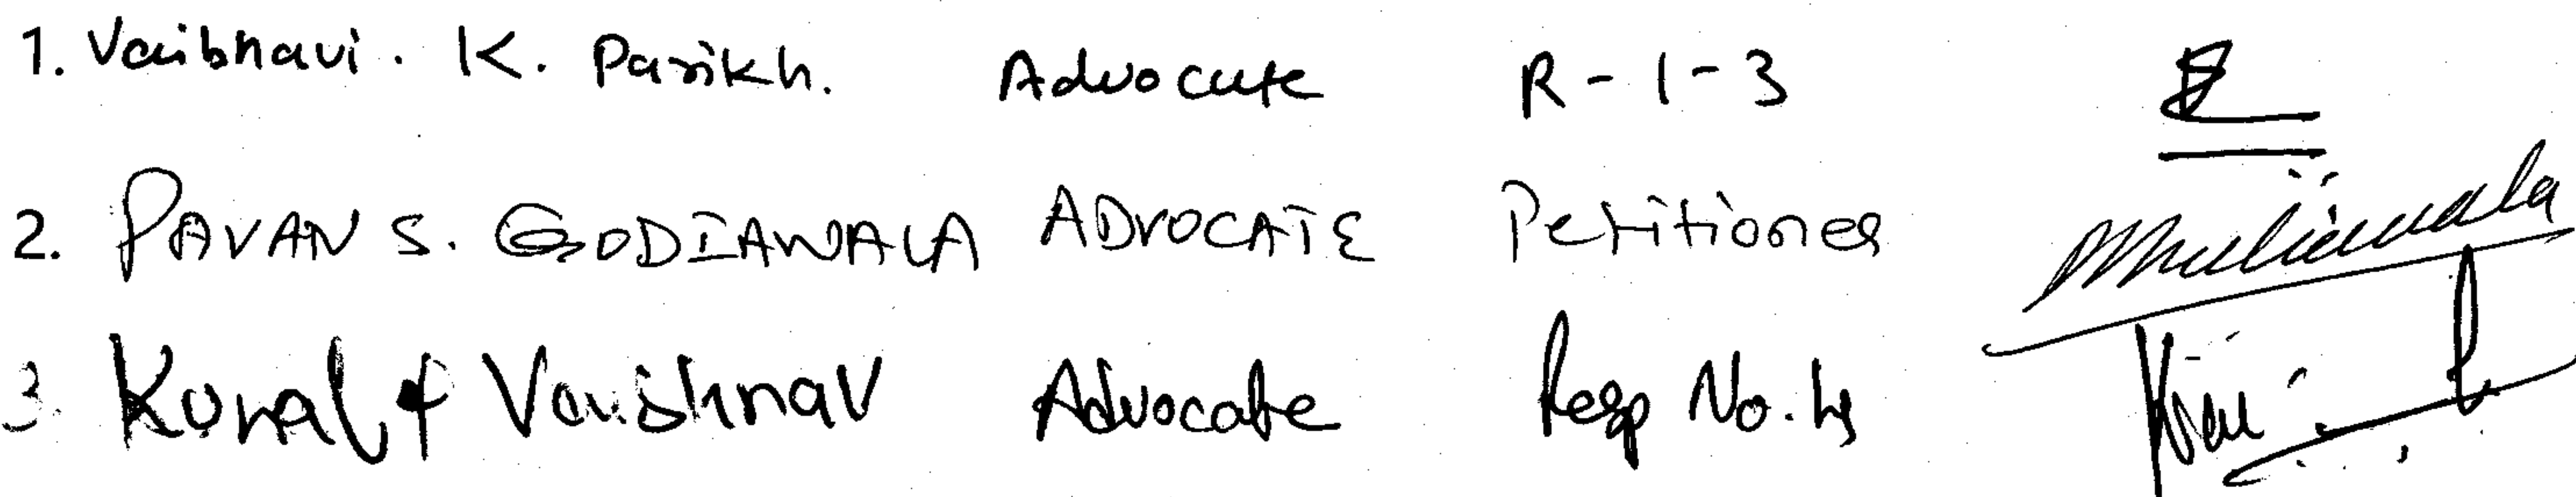 1. Vaibhavi. K. Parikh. Advocate R-1-3
2. PAVAN S. GODIAWALA ADVOCATE Petitioner
3. Kunal P Vaishnav Advocate Resp No. 4